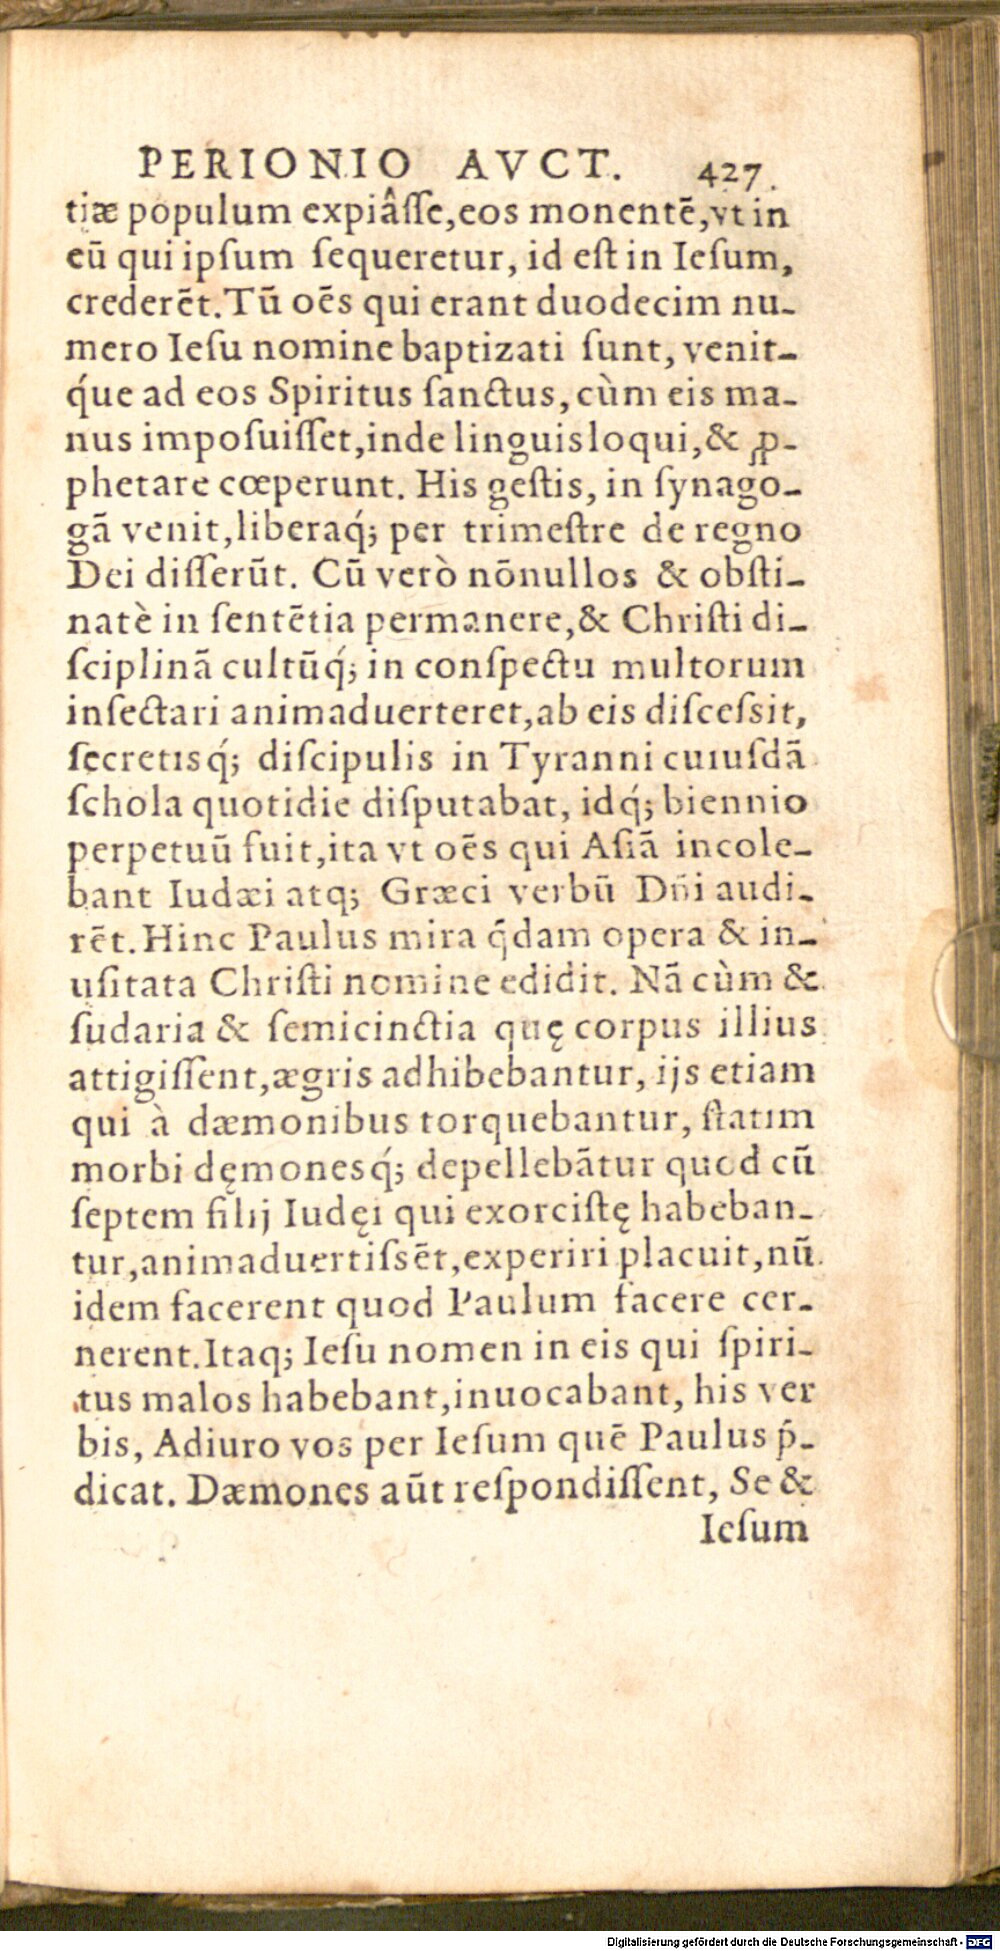 PERIONIO AVCT. 427.
tiæ populum expiâſſe,eos monentē,vt in
eū qui ipſum ſequeretur, id eſt in Ieſum,
crederēt. Tū oēs qui erant duodecim nu-
mero Ieſu nomine baptizati ſunt, venit-
q́ue ad eos Spiritus ſanctus, cùm eis ma-
nus impoſuiſſet,inde linguis loqui,& ꝓ-
phetare cœperunt. His geſtis, in ſynago-
gā venit,liberaq́; per trimeſtre de regno
Dei diſſerūt. Cū verò nōnullos & obſti-
natè in ſentētia permanere,& Chriſti di-
ſciplinā cultūq́; in conſpectu multorum
inſectari animaduerteret,ab eis diſceſsit,
ſecretisq́; diſcipulis in Tyranni cuiuſdā
ſchola quotidie diſputabat, idq́; biennio
perpetuū fuit,ita vt oēs qui Aſiā incole-
bant Iudæi atq; Græci verbū Dñi audi-
rēt. Hinc Paulus mira q̄dam opera & in-
uſitata Chriſti nomine edidit. Nā cùm &
ſudaria & ſemicinctia quę corpus illius
attigiſſent,ægris adhibebantur, ijs etiam
qui à dæmonibus torquebantur, ſtatim
morbi dęmonesq́; depellebātur quod cū
ſeptem filij Iudęi qui exorciſtę habeban-
tur,animaduertiſsēt,experiri placuit,nū
idem facerent quod Paulum facere cer-
nerent. Itaq; Ieſu nomen in eis qui ſpiri-
tus malos habebant,inuocabant, his ver
bis, Adiuro vos per Ieſum quē Paulus p̄-
dicat. Dæmones aūt reſpondiſſent, Se &
Ieſum
Digitalisierung gefördert durch die Deutsche Forschungsgemeinschaft - DFG